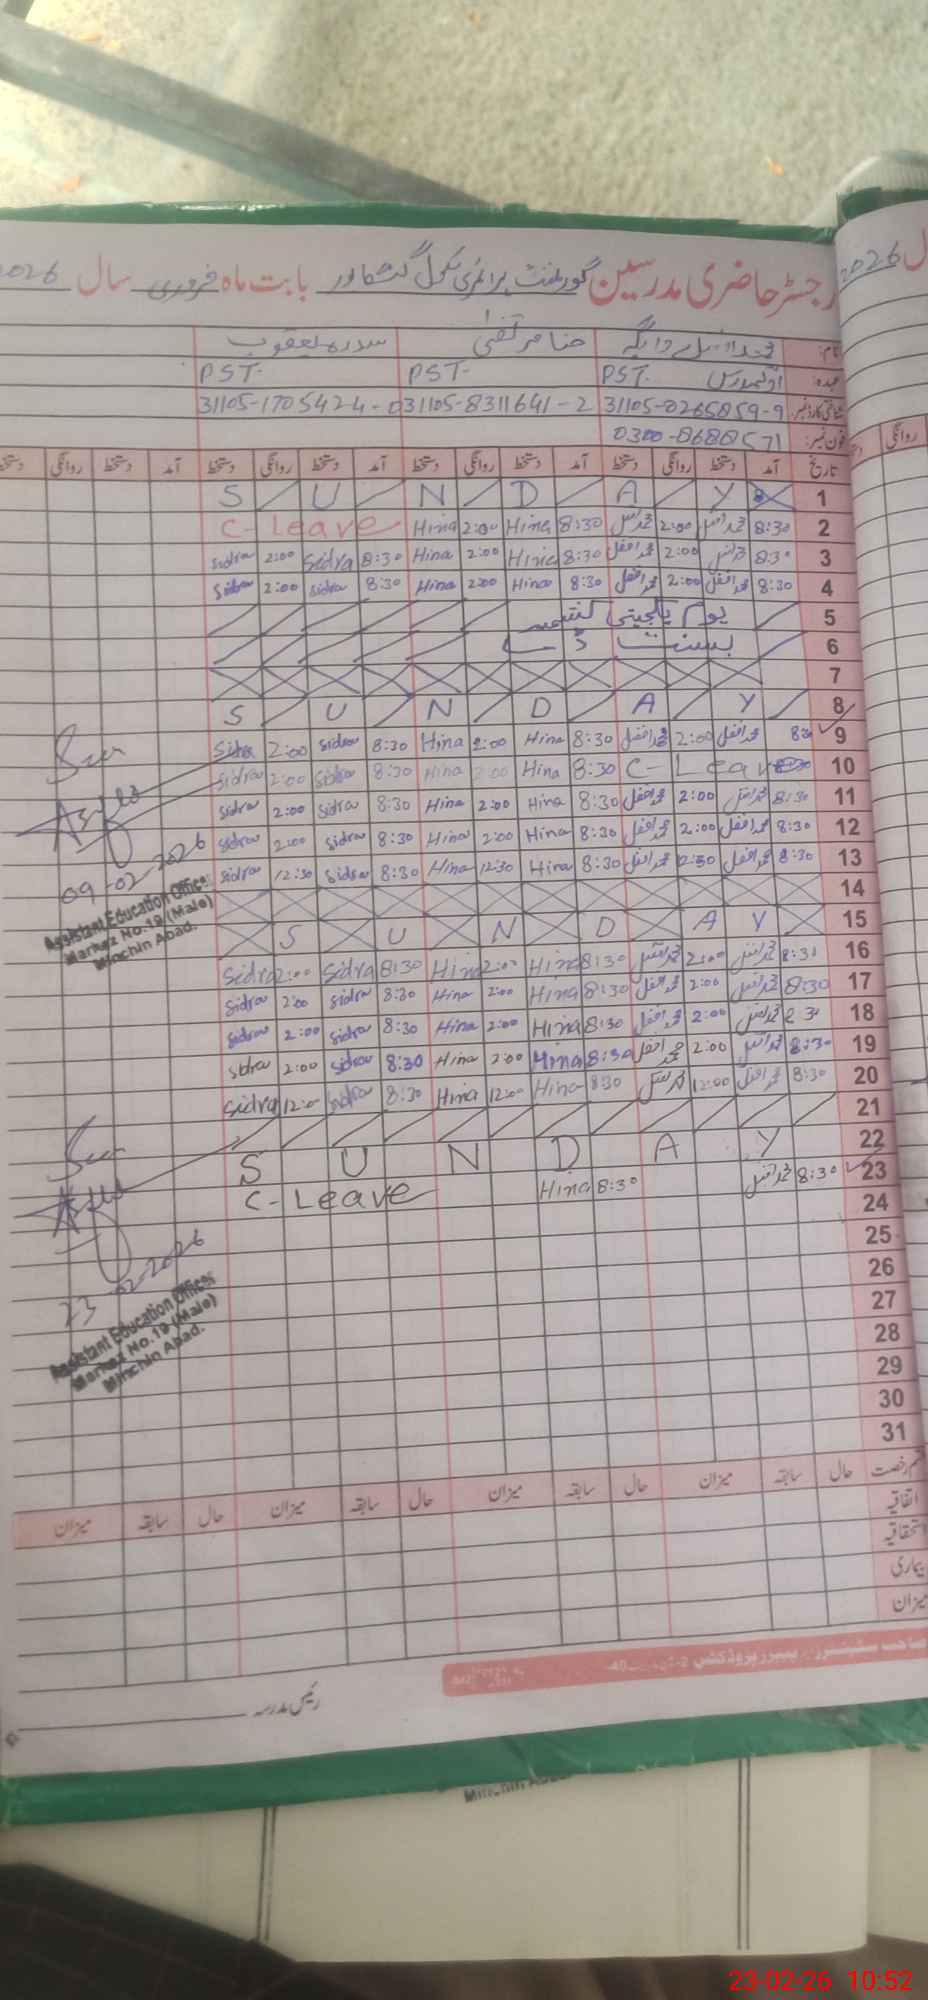 رجسٹر حاضری مدرسین گورنمنٹ پرائمری سکول بابت ماہ فروری سال 2026
نام: محمد افضل حنا مرتضیٰ سدرہ یعقوب
عہدہ: PST. PST- PST-
شناختی کارڈ نمبر 31105-0265859-9 31105-8311641-2 31105-1705424-0
فون نمبر: 0300-8688571
تاریخ آمد دستخط روانگی دستخط آمد دستخط روانگی دستخط آمد دستخط روانگی دستخط آمد دستخط روانگی دستخط
1 S U N D A Y
2 8:30 محمد افضل 2:00 محمد افضل 8:30 Hina 2:00 Hina C-Leave
3 8:30 محمد افضل 2:00 محمد افضل 8:30 Hina 2:00 Hina 8:30 Sidra 2:00 Sidra
4 8:30 محمد افضل 2:00 محمد افضل 8:30 Hina 2:00 Hina 8:30 Sidra 2:00 Sidra
5 یوم یکجہتی کشمیر
6 بسنت
7
8 S U N D A Y
9 8:30 محمد افضل 2:00 محمد افضل 8:30 Hina 2:00 Hina 8:30 Sidra 2:00 Sidra
10 C-Leave 8:30 Hina 2:00 Hina 8:30 Sidra 2:00 Sidra
11 8:30 محمد افضل 2:00 محمد افضل 8:30 Hina 2:00 Hina 8:30 Sidra 2:00 Sidra
12 8:30 محمد افضل 2:00 محمد افضل 8:30 Hina 2:00 Hina 8:30 Sidra 2:00 Sidra
13 8:30 محمد افضل 12:30 محمد افضل 8:30 Hina 12:30 Hina 8:30 Sidra 12:30 Sidra
14
15 S U N D A Y
16 8:30 محمد افضل 2:00 محمد افضل 8:30 Hina 2:00 Hina 8:30 Sidra 2:00 Sidra
17 8:30 محمد افضل 2:00 محمد افضل 8:30 Hina 2:00 Hina 8:30 Sidra 2:00 Sidra
18 8:30 محمد افضل 2:00 محمد افضل 8:30 Hina 2:00 Hina 8:30 Sidra 2:00 Sidra
19 8:30 محمد افضل 2:00 محمد افضل 8:30 Hina 2:00 Hina 8:30 Sidra 2:00 Sidra
20 8:30 محمد افضل 12:00 محمد افضل 8:30 Hina 12:00 Hina 8:30 Sidra 12:00 Sidra
21
22 S U N D A Y
23 8:30 محمد افضل 8:30 Hina C-Leave
24
25
26
27
28
29
30
31
09-02-2026
Assistant Education Officer
Markaz No.19 (Male)
Minchin Abad.
23-02-2026
Assistant Education Officer
Markaz No.19 (Male)
Minchin Abad.
قسم رخصت حال سابقہ میزان حال سابقہ میزان حال سابقہ میزان حال سابقہ میزان
اتفاقیہ
استحقاقیہ
بیماری
میزان
رئیس مدرسہ
سال 2026
روانگی
23-02-26 10:52